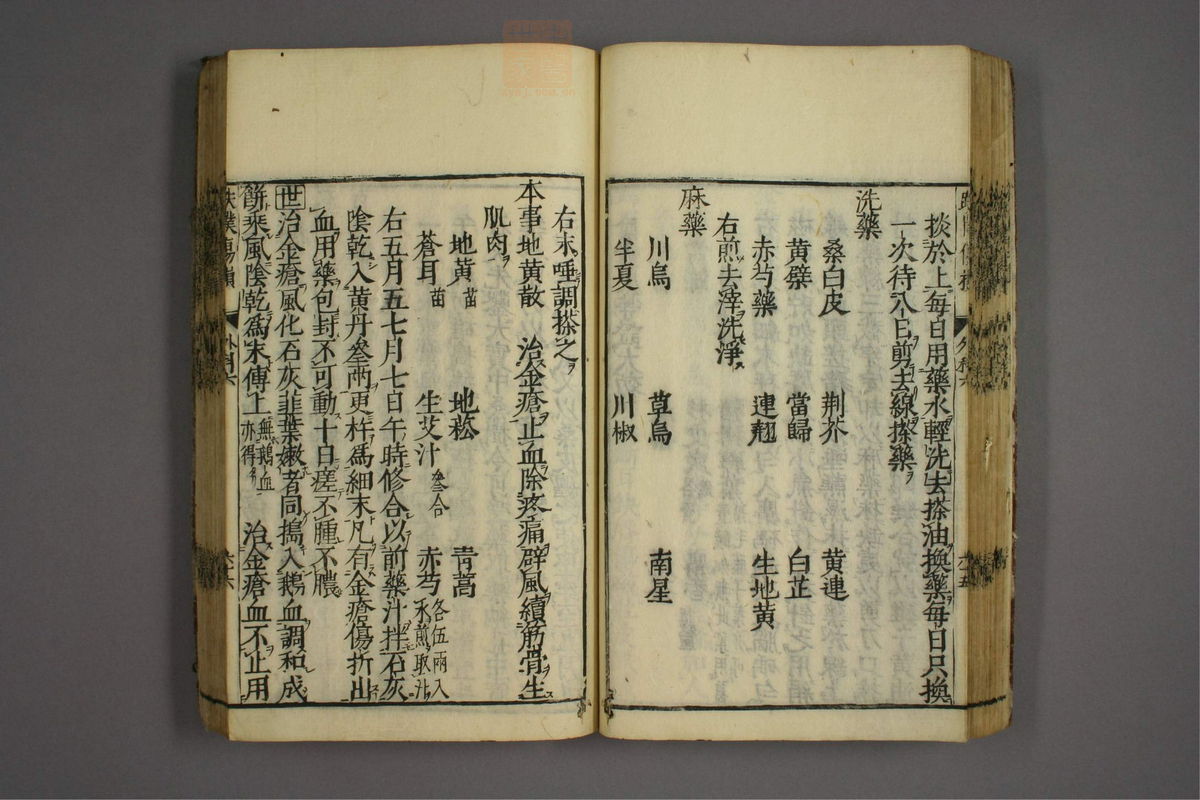 掞於上每日用藥水輕洗去搽油換藥每日只換
一次待八日剪去線搽藥
洗藥
桑白皮 荆芥 黄連
黄檗 當歸 白芷
赤芍藥 連翹 生地黄
右煎去滓洗淨
麻藥
川烏 草烏 南星
半夏 川椒
右末唾調搽之
本事地黄散 治金瘡止血除疼痛辟風續筋骨生
肌肉
地黄苗 地菘 靑蒿
蒼耳苗 生艾汁叁合 赤芍各伍兩入水煎取汁
右五月五七月七日午時修合以前藥汁拌石灰
陰乾入黄丹叁兩更杵爲細末凡有金瘡傷折出
血用藥包封不可動十日瘥不腫不膿
世治金瘡風化石灰韮葉嫩者同搗入鵝血調和成
餅乘風陰乾爲末傅上無鵝血亦得 治金瘡血不止用